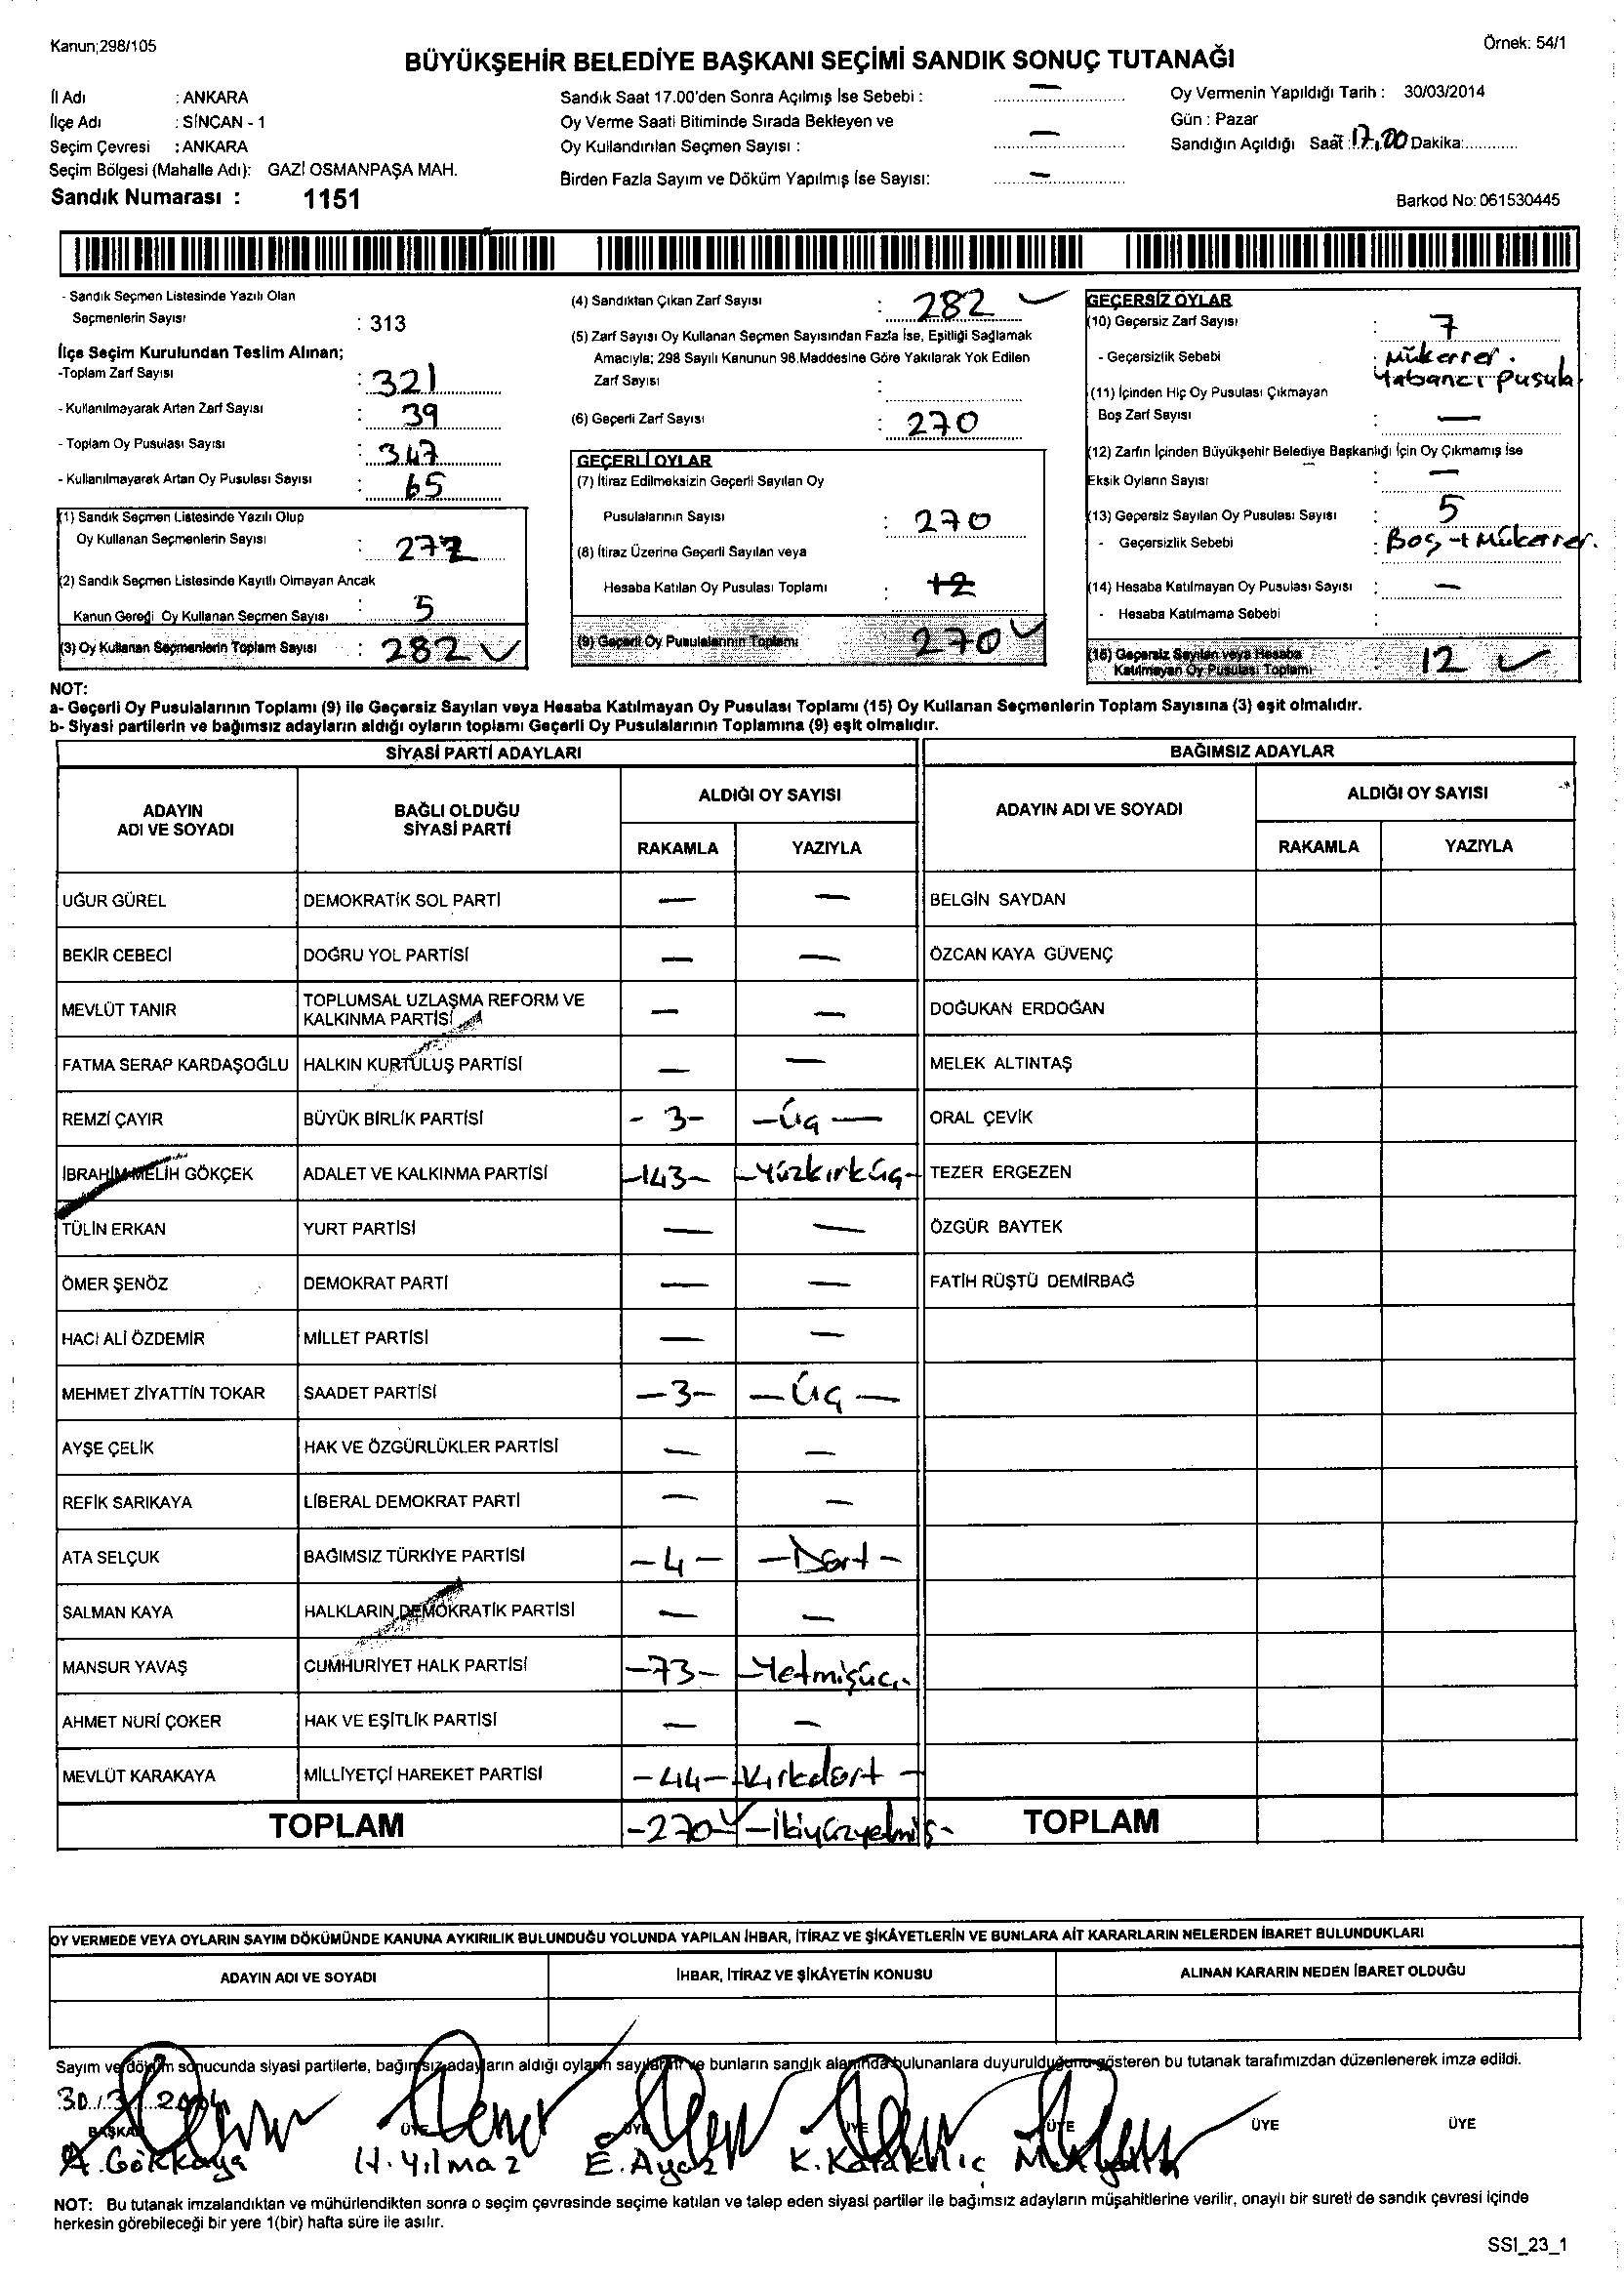 Kanun;298/105
Örnek: 54/1
BÜYÜKŞEHİR BELEDİYE BAŞKANI SEÇİMİ SANDIK SONUÇ TUTANAĞI
İl Adı : ANKARA
İlçe Adı : SİNCAN - 1
Seçim Çevresi : ANKARA
Seçim Bölgesi (Mahalle Adı): GAZİ OSMANPAŞA MAH.
Sandık Numarası : 1151
Sandık Saat 17.00'den Sonra Açılmış İse Sebebi : —
Oy Verme Saati Bitiminde Sırada Bekleyen ve
Oy Kullandırılan Seçmen Sayısı : —
Birden Fazla Sayım ve Döküm Yapılmış İse Sayısı: —
Oy Vermenin Yapıldığı Tarih : 30/03/2014
Gün : Pazar
Sandığın Açıldığı Saat : 17,00 Dakika:
Barkod No: 061530445
- Sandık Seçmen Listesinde Yazılı Olan
Seçmenlerin Sayısı : 313
İlçe Seçim Kurulundan Teslim Alınan;
-Toplam Zarf Sayısı : 321
- Kullanılmayarak Artan Zarf Sayısı : 39
- Toplam Oy Pusulası Sayısı : 347
- Kullanılmayarak Artan Oy Pusulası Sayısı : 65
(1) Sandık Seçmen Listesinde Yazılı Olup
Oy Kullanan Seçmenlerin Sayısı : 277
(2) Sandık Seçmen Listesinde Kayıtlı Olmayan Ancak
Kanun Gereği Oy Kullanan Seçmen Sayısı : 5
(3) Oy Kullanan Seçmenlerin Toplam Sayısı : 282
(4) Sandıktan Çıkan Zarf Sayısı : 282
(5) Zarf Sayısı Oy Kullanan Seçmen Sayısından Fazla İse, Eşitliği Sağlamak
Amacıyla; 298 Sayılı Kanunun 98.Maddesine Göre Yakılarak Yok Edilen
Zarf Sayısı :
(6) Geçerli Zarf Sayısı : 270
GEÇERLİ OYLAR
(7) İtiraz Edilmeksizin Geçerli Sayılan Oy
Pusulalarının Sayısı : 270
(8) İtiraz Üzerine Geçerli Sayılan veya
Hesaba Katılan Oy Pusulası Toplamı : 12
(9) Geçerli Oy Pusulalarının Toplamı 270
GEÇERSİZ OYLAR
(10) Geçersiz Zarf Sayısı : 7
- Geçersizlik Sebebi : Mükerrer.
Yabancı Pusula
(11) İçinden Hiç Oy Pusulası Çıkmayan
Boş Zarf Sayısı : —
(12) Zarfın İçinden Büyükşehir Belediye Başkanlığı İçin Oy Çıkmamış İse
Eksik Oyların Sayısı : —
(13) Geçersiz Sayılan Oy Pusulası Sayısı : 5
- Geçersizlik Sebebi : Boş + Mükerrer.
(14) Hesaba Katılmayan Oy Pusulası Sayısı : —
- Hesaba Katılmama Sebebi :
(15) Geçersiz Sayılan veya Hesaba
Katılmayan Oy Pusulası Toplamı : 12
NOT:
a- Geçerli Oy Pusulalarının Toplamı (9) ile Geçersiz Sayılan veya Hesaba Katılmayan Oy Pusulası Toplamı (15) Oy Kullanan Seçmenlerin Toplam Sayısına (3) eşit olmalıdır.
b- Siyasi partilerin ve bağımsız adayların aldığı oyların toplamı Geçerli Oy Pusulalarının Toplamına (9) eşit olmalıdır.
SİYASİ PARTİ ADAYLARI BAĞIMSIZ ADAYLAR
ADAYIN
ADI VE SOYADI
BAĞLI OLDUĞU
SİYASİ PARTİ
ALDIĞI OY SAYISI
RAKAMLA YAZIYLA
ADAYIN ADI VE SOYADI
ALDIĞI OY SAYISI
RAKAMLA YAZIYLA
UĞUR GÜREL DEMOKRATİK SOL PARTİ — — BELGİN SAYDAN
BEKİR CEBECİ DOĞRU YOL PARTİSİ — — ÖZCAN KAYA GÜVENÇ
MEVLÜT TANIR TOPLUMSAL UZLAŞMA REFORM VE
KALKINMA PARTİSİ — — DOĞUKAN ERDOĞAN
FATMA SERAP KARDAŞOĞLU HALKIN KURTULUŞ PARTİSİ — — MELEK ALTINTAŞ
REMZİ ÇAYIR BÜYÜK BİRLİK PARTİSİ - 3 - - Üç - ORAL ÇEVİK
İBRAHİM MELİH GÖKÇEK ADALET VE KALKINMA PARTİSİ -143- -Yüzkırküç- TEZER ERGEZEN
TÜLİN ERKAN YURT PARTİSİ — — ÖZGÜR BAYTEK
ÖMER ŞENÖZ DEMOKRAT PARTİ — — FATİH RÜŞTÜ DEMİRBAĞ
HACI ALİ ÖZDEMİR MİLLET PARTİSİ — —
MEHMET ZİYATTİN TOKAR SAADET PARTİSİ -3- - Üç -
AYŞE ÇELİK HAK VE ÖZGÜRLÜKLER PARTİSİ — —
REFİK SARIKAYA LİBERAL DEMOKRAT PARTİ — —
ATA SELÇUK BAĞIMSIZ TÜRKİYE PARTİSİ -4- -Dört-
SALMAN KAYA HALKLARIN DEMOKRATİK PARTİSİ — —
MANSUR YAVAŞ CUMHURİYET HALK PARTİSİ -73- -Yetmişüç-
AHMET NURİ ÇOKER HAK VE EŞİTLİK PARTİSİ — —
MEVLÜT KARAKAYA MİLLİYETÇİ HAREKET PARTİSİ -44- -Kırkdört-
TOPLAM -270- -İkiyüzyetmiş- TOPLAM
OY VERMEDE VEYA OYLARIN SAYIM DÖKÜMÜNDE KANUNA AYKIRILIK BULUNDUĞU YOLUNDA YAPILAN İHBAR, İTİRAZ VE ŞİKÂYETLERİN VE BUNLARA AİT KARARLARIN NELERDEN İBARET BULUNDUKLARI
ADAYIN ADI VE SOYADI İHBAR, İTİRAZ VE ŞİKÂYETİN KONUSU ALINAN KARARIN NEDEN İBARET OLDUĞU
Sayım ve döküm sonucunda siyasi partilerle, bağımsız adayların aldığı oyların sayıları ve bunların sandık alanında bulunanlara duyurulduğunu gösteren bu tutanak tarafımızdan düzenlenerek imza edildi.
BAŞKAN ÜYE ÜYE ÜYE ÜYE ÜYE ÜYE
A.Gökkaya H.Yılmaz E.Ayaz
NOT: Bu tutanak imzalandıktan ve mühürlendikten sonra o seçim çevresinde seçime katılan ve talep eden siyasi partiler ile bağımsız adayların müşahitlerine verilir, onaylı bir sureti de sandık çevresi içinde
herkesin görebileceği bir yere 1(bir) hafta süre ile asılır.
SSI_23_1